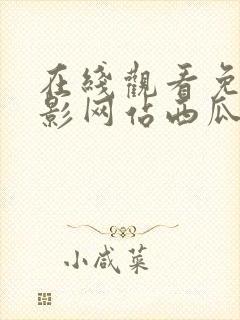 在綫觀看免
影网佔西瓜
小咸菜